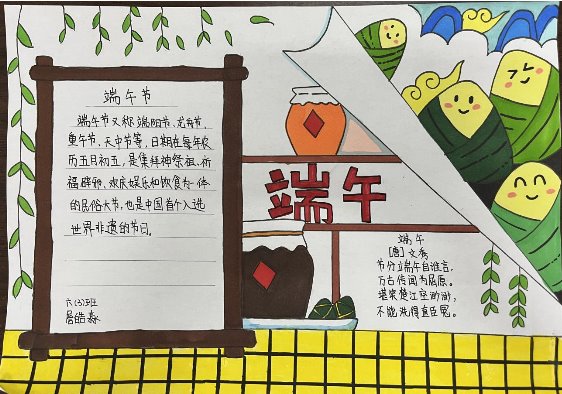 端午节
端午节又称端阳节、龙舟节、
重午节、天中节等，日期在每年农
历五月初五，是集拜神祭祖、祈
福辟邪、欢庆娱乐和饮食为一体
的民俗大节，也是中国首个入选
世界非遗的节日。
六(3)班
端午
端午
[唐]文秀
节分端午自谁言，
万古传闻为屈原。
堪笑楚江空渺渺，
不能洗得直臣冤。